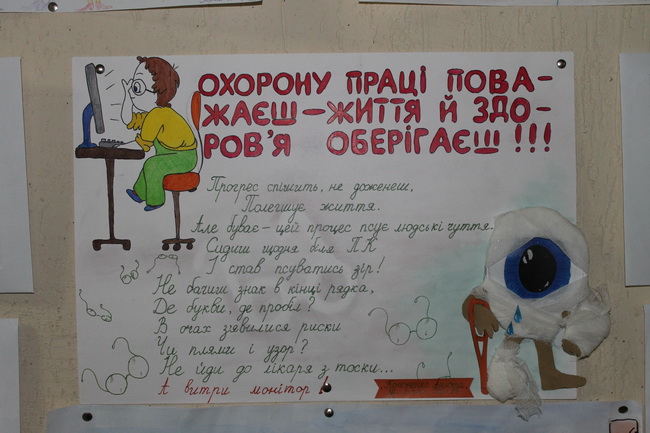 ОХОРОНУ ПРАЦІ ПОВА-
ЖАЄШ – ЖИТТЯ Й ЗДО-
РОВ'Я ОБЕРІГАЄШ!!!
Прогрес спішить, не доженеш,
Полегшує життя.
Але буває – цей процес псує людські чуття.
Сидиш щодня біля ПК
І став псуватись зір!
Не бачиш знак в кінці рядка,
Де букви, де пробіл?
В очах з'явилися риски
Чи плями і узор?
Не йди до лікаря з тоски...
А витри монітор!